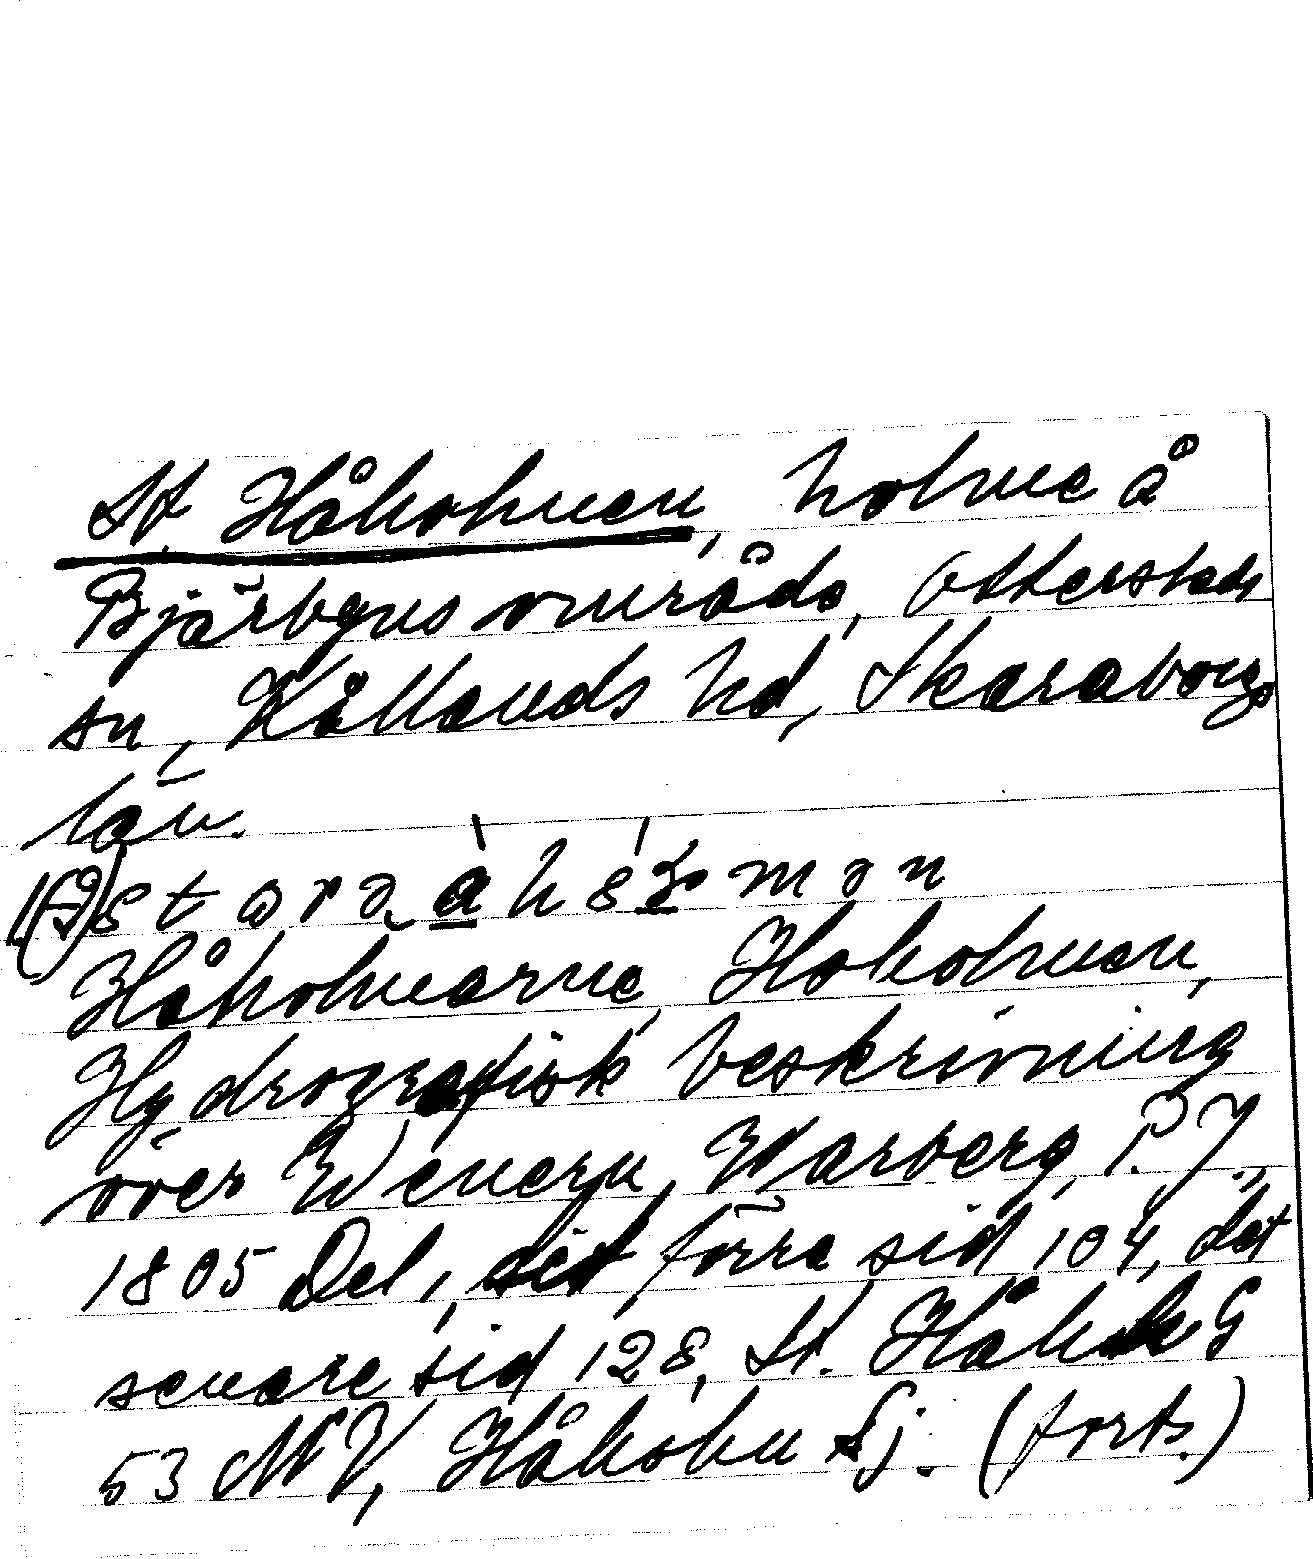 St. Håkolmen, holme å
Bjärbygns område, Otterstads
sn, Kållands hd, Skaraborgs
län.
Håkolmarne, Hokolmen,
Hydrografisk beskrivning
över Wenern, Warberg, P. J.,
1805 Del, det förra sid 104, det
senare sid 128, St. Håkh G
53 NV, Håkolm Sj. (forts.)